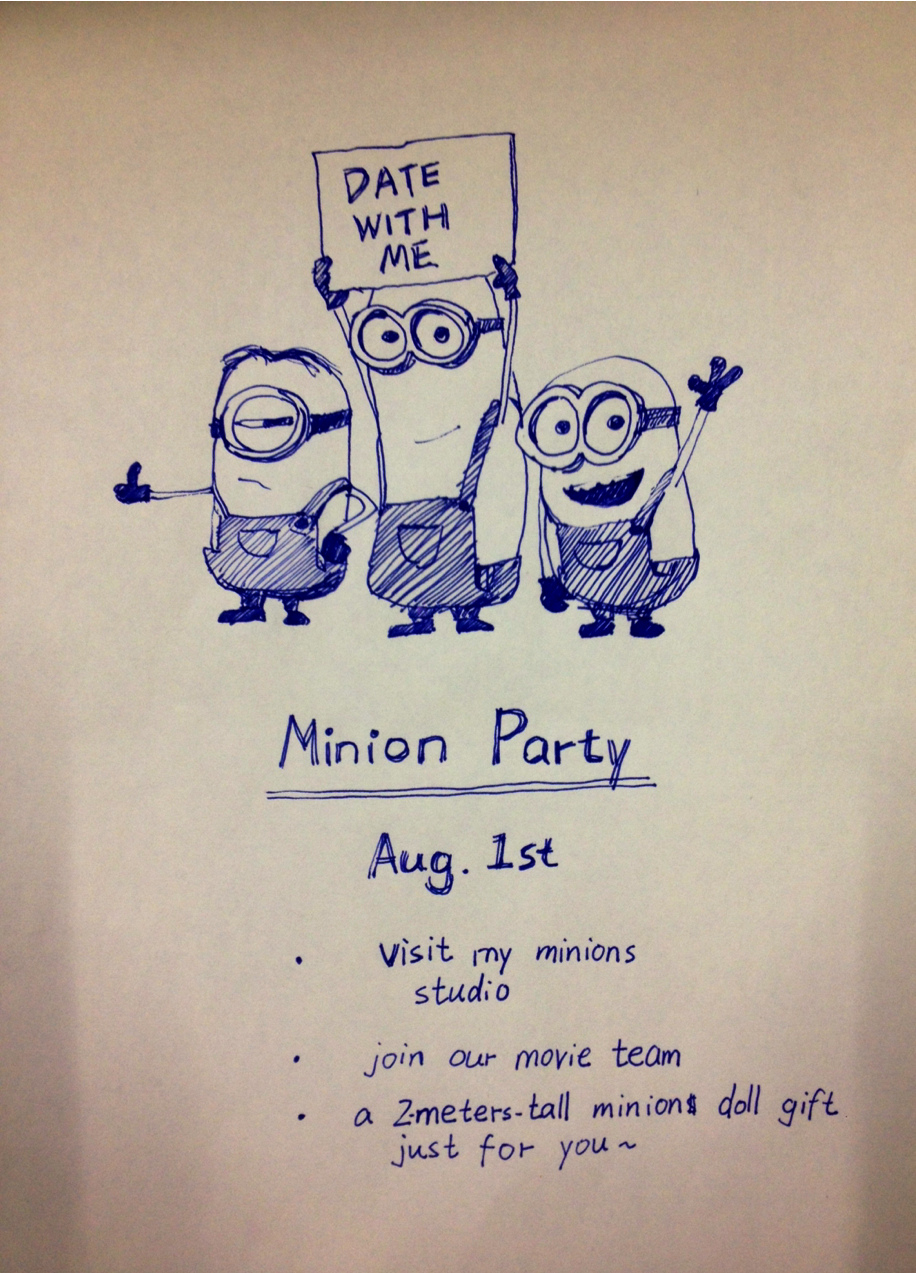 DATE
WITH
ME
Minion Party
Aug. 1st
• Visit my minions
studio
• join our movie team
• a 2-meters-tall minions doll gift
just for you~